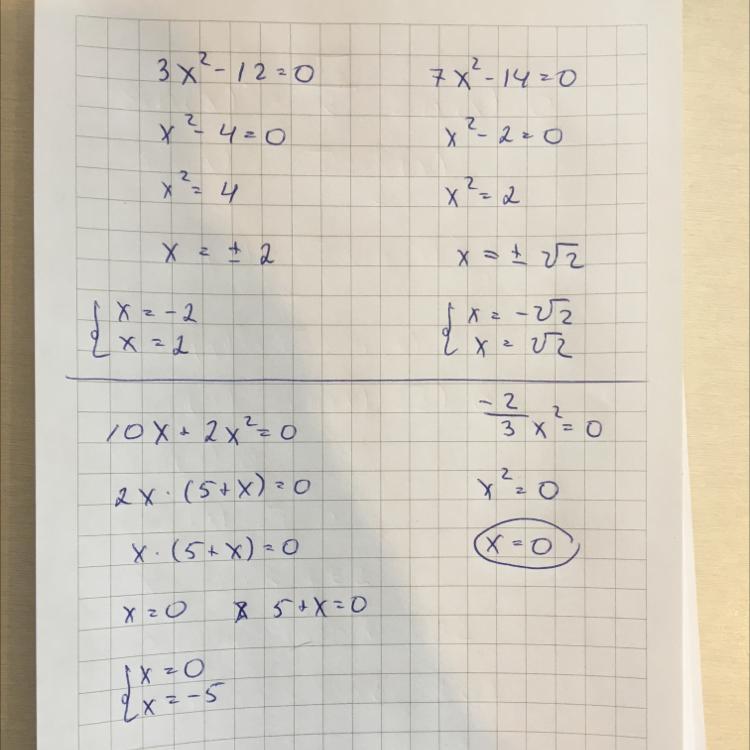 3x² - 12 = 0
x² - 4 = 0
x² = 4
x = ± 2
{ x = -2
x = 2
7x² - 14 = 0
x² - 2 = 0
x² = 2
x = ± √2
{ x = -√2
x = √2
10x + 2x² = 0
2x · (5 + x) = 0
x · (5 + x) = 0
x = 0 5 + x = 0
{ x = 0
x = -5
-2/3 x² = 0
x² = 0
x = 0